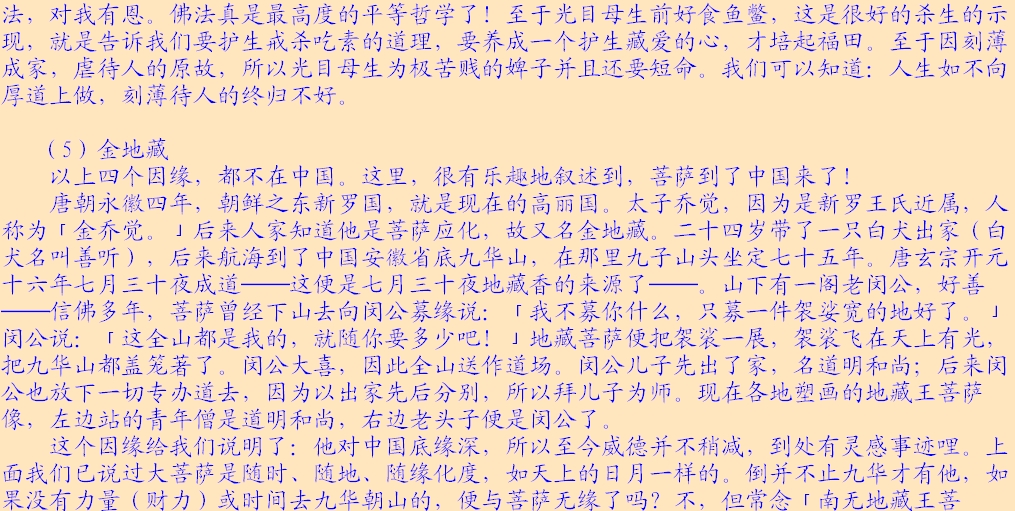 法，对我有恩。佛法真是最高度的平等哲学了！至于光目母生前好食鱼鳖，这是很好的杀生的示
现，就是告诉我们要护生戒杀吃素的道理，要养成一个护生藏爱的心，才培起福田。至于因刻薄
成家，虐待人的原故，所以光目母生为极苦贱的婢子并且还要短命。我们可以知道：人生如不向
厚道上做，刻薄待人的终归不好。
（5）金地藏
以上四个因缘，都不在中国。这里，很有乐趣地叙述到，菩萨到了中国来了！
唐朝永徽四年，朝鲜之东新罗国，就是现在的高丽国。太子乔觉，因为是新罗王氏近属，人
称为「金乔觉。」后来人家知道他是菩萨应化，故又名金地藏。二十四岁带了一只白犬出家（白
犬名叫善听），后来航海到了中国安徽省底九华山，在那里九子山头坐定七十五年。唐玄宗开元
十六年七月三十夜成道——这便是七月三十夜地藏香的来源了——。山下有一阁老闵公，好善
——信佛多年，菩萨曾经下山去向闵公募缘说：「我不募你什么，只募一件袈裟宽的地好了。」
闵公说：「这全山都是我的，就随你要多少吧！」地藏菩萨便把袈裟一展，袈裟飞在天上有光，
把九华山都盖笼著了。闵公大喜，因此全山送作道场。闵公儿子先出了家，名道明和尚；后来闵
公也放下一切专办道去，因为以出家先后分别，所以拜儿子为师。现在各地塑画的地藏王菩萨
像，左边站的青年僧是道明和尚，右边老头子便是闵公了。
这个因缘给我们说明了：他对中国底缘深，所以至今威德并不稍减，到处有灵感事迹哩。上
面我们已说过大菩萨是随时、随地、随缘化度，如天上的日月一样的。倒并不止九华才有他，如
果没有力量（财力）或时间去九华朝山的，便与菩萨无缘了吗？不，但常念「南无地藏王菩